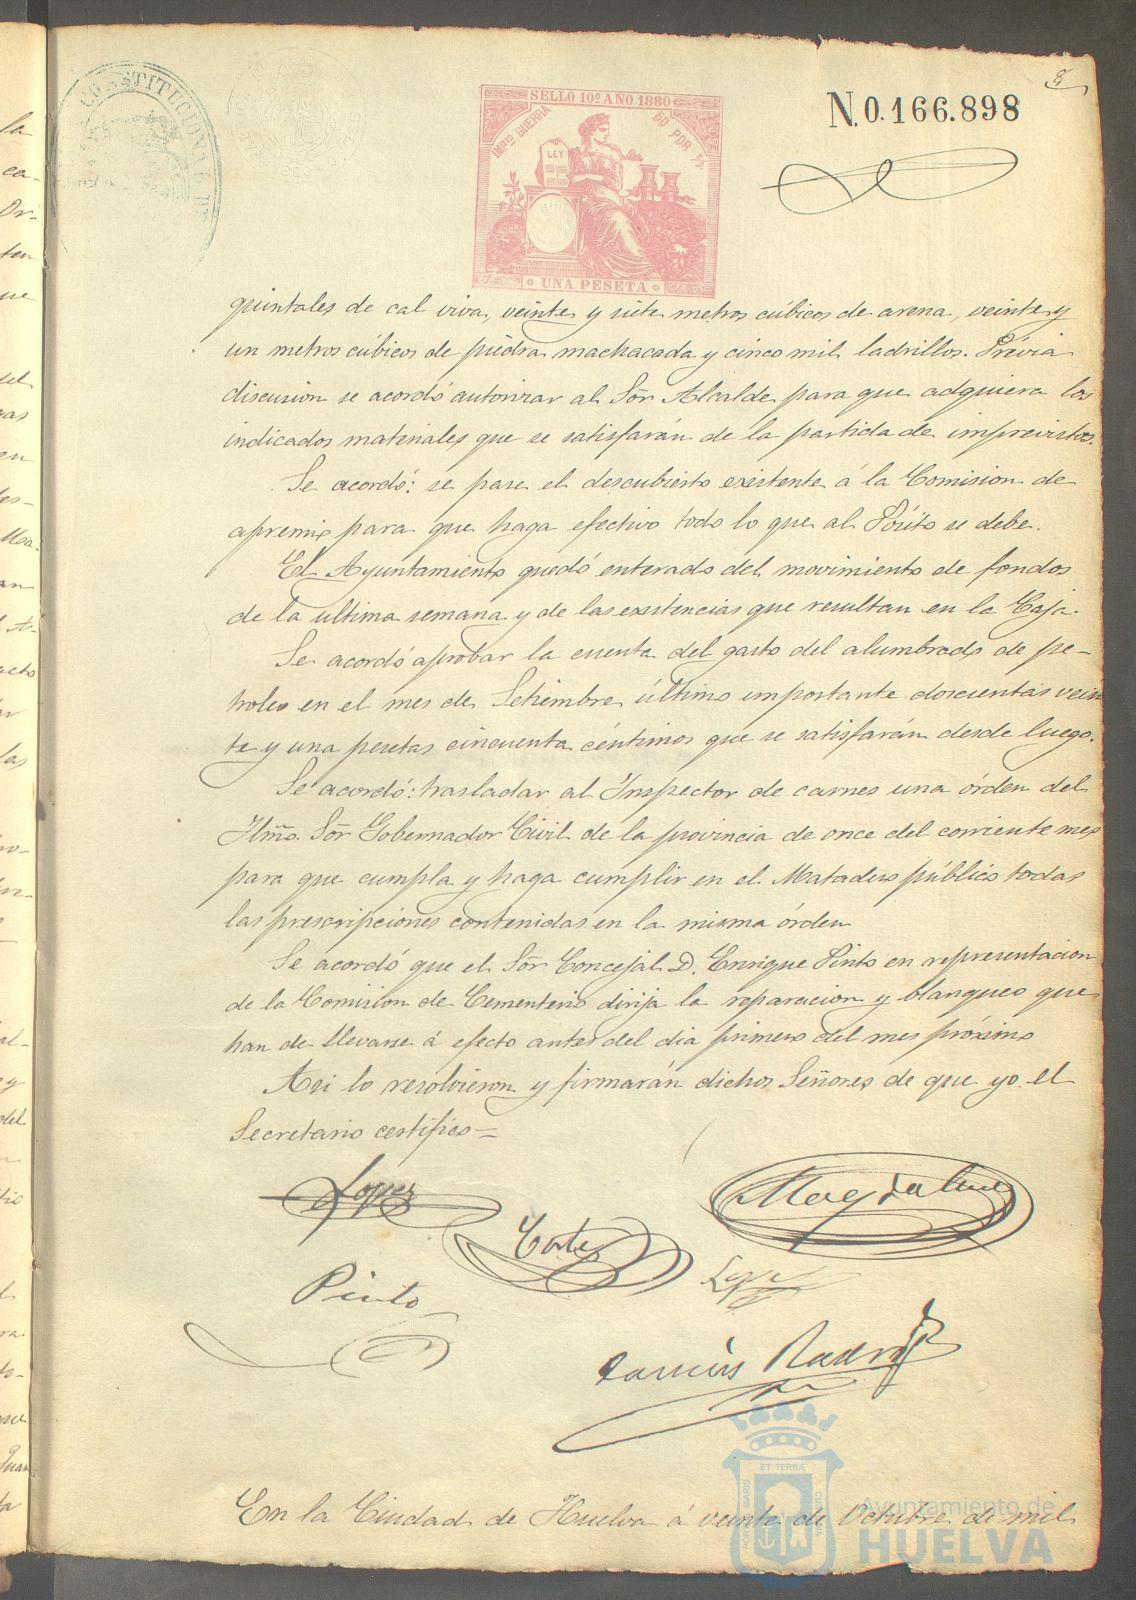 SELLO 10º AÑO 1880
IMPTO GUERRA
50 POR %
LEY
UNA PESETA
N.0.166.898
CONSTITUCIONAL DE
quintales de cal viva, veinte y siete metros cúbicos de arena, veinte y
un metros cúbicos de piedra machacada y cinco mil ladrillos. Prévia
discusion se acordó autorizar al Sōr Alcalde para que adquiera los
indicados materiales que se satisfarán de la partida de imprevistos.
Se acordó: se pase el descubierto existente á la Comision de
apremio para que haga efectivo todo lo que al Pósito se debe.
El Ayuntamiento quedó enterado del movimiento de fondos
de la ultima semana y de las existencias que resultan en la Caja.
Se acordó aprobar la cuenta del gasto del alumbrado de pe-
troleo en el mes de Setiembre último importante doscientas vein
te y una pesetas cincuenta céntimos que se satisfarán desde luego.
Se acordó: trasladar al Inspector de carnes una órden del
Ilmo. Sōr Gobernador Civil de la provincia de once del corriente mes
para que cumpla y haga cumplir en el Matadero público todas
las prescripciones contenidas en la misma órden
Se acordó que el Sōr Concejal D. Enrique Pinto en representacion
de la Comision de Cementerio dirija la reparacion y blanqueo que
han de llevarse á efecto antes del dia primero del mes próximo
Asi lo resolvieron y firmarán dichos Señores de que yo el
Secretario certifico=
Lopez
Magdalena
Cortes
Pinto
En la Ciudad de Huelva á veinte de Octubre de mil
Ayuntamiento de
HUELVA